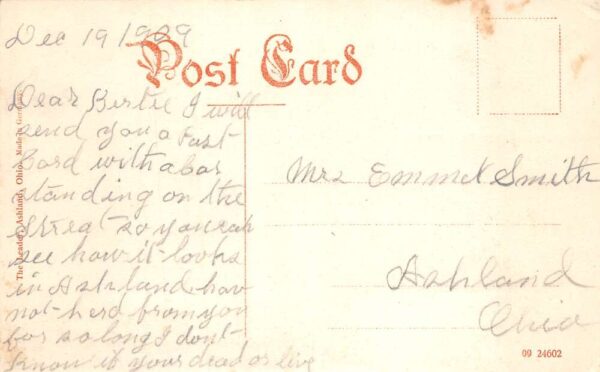 Dec 19 1909
Post Card
Dear Bertie I will
send you a Post
Card with a
standing on the
Street so you can
see how it looks
in Ashland hav
not herd from you
for so long I dont
know if your dead or live
Mrs Emmet Smith
Ashland
Ohio
The Leader, Ashland, Ohio. Made in
09 24602